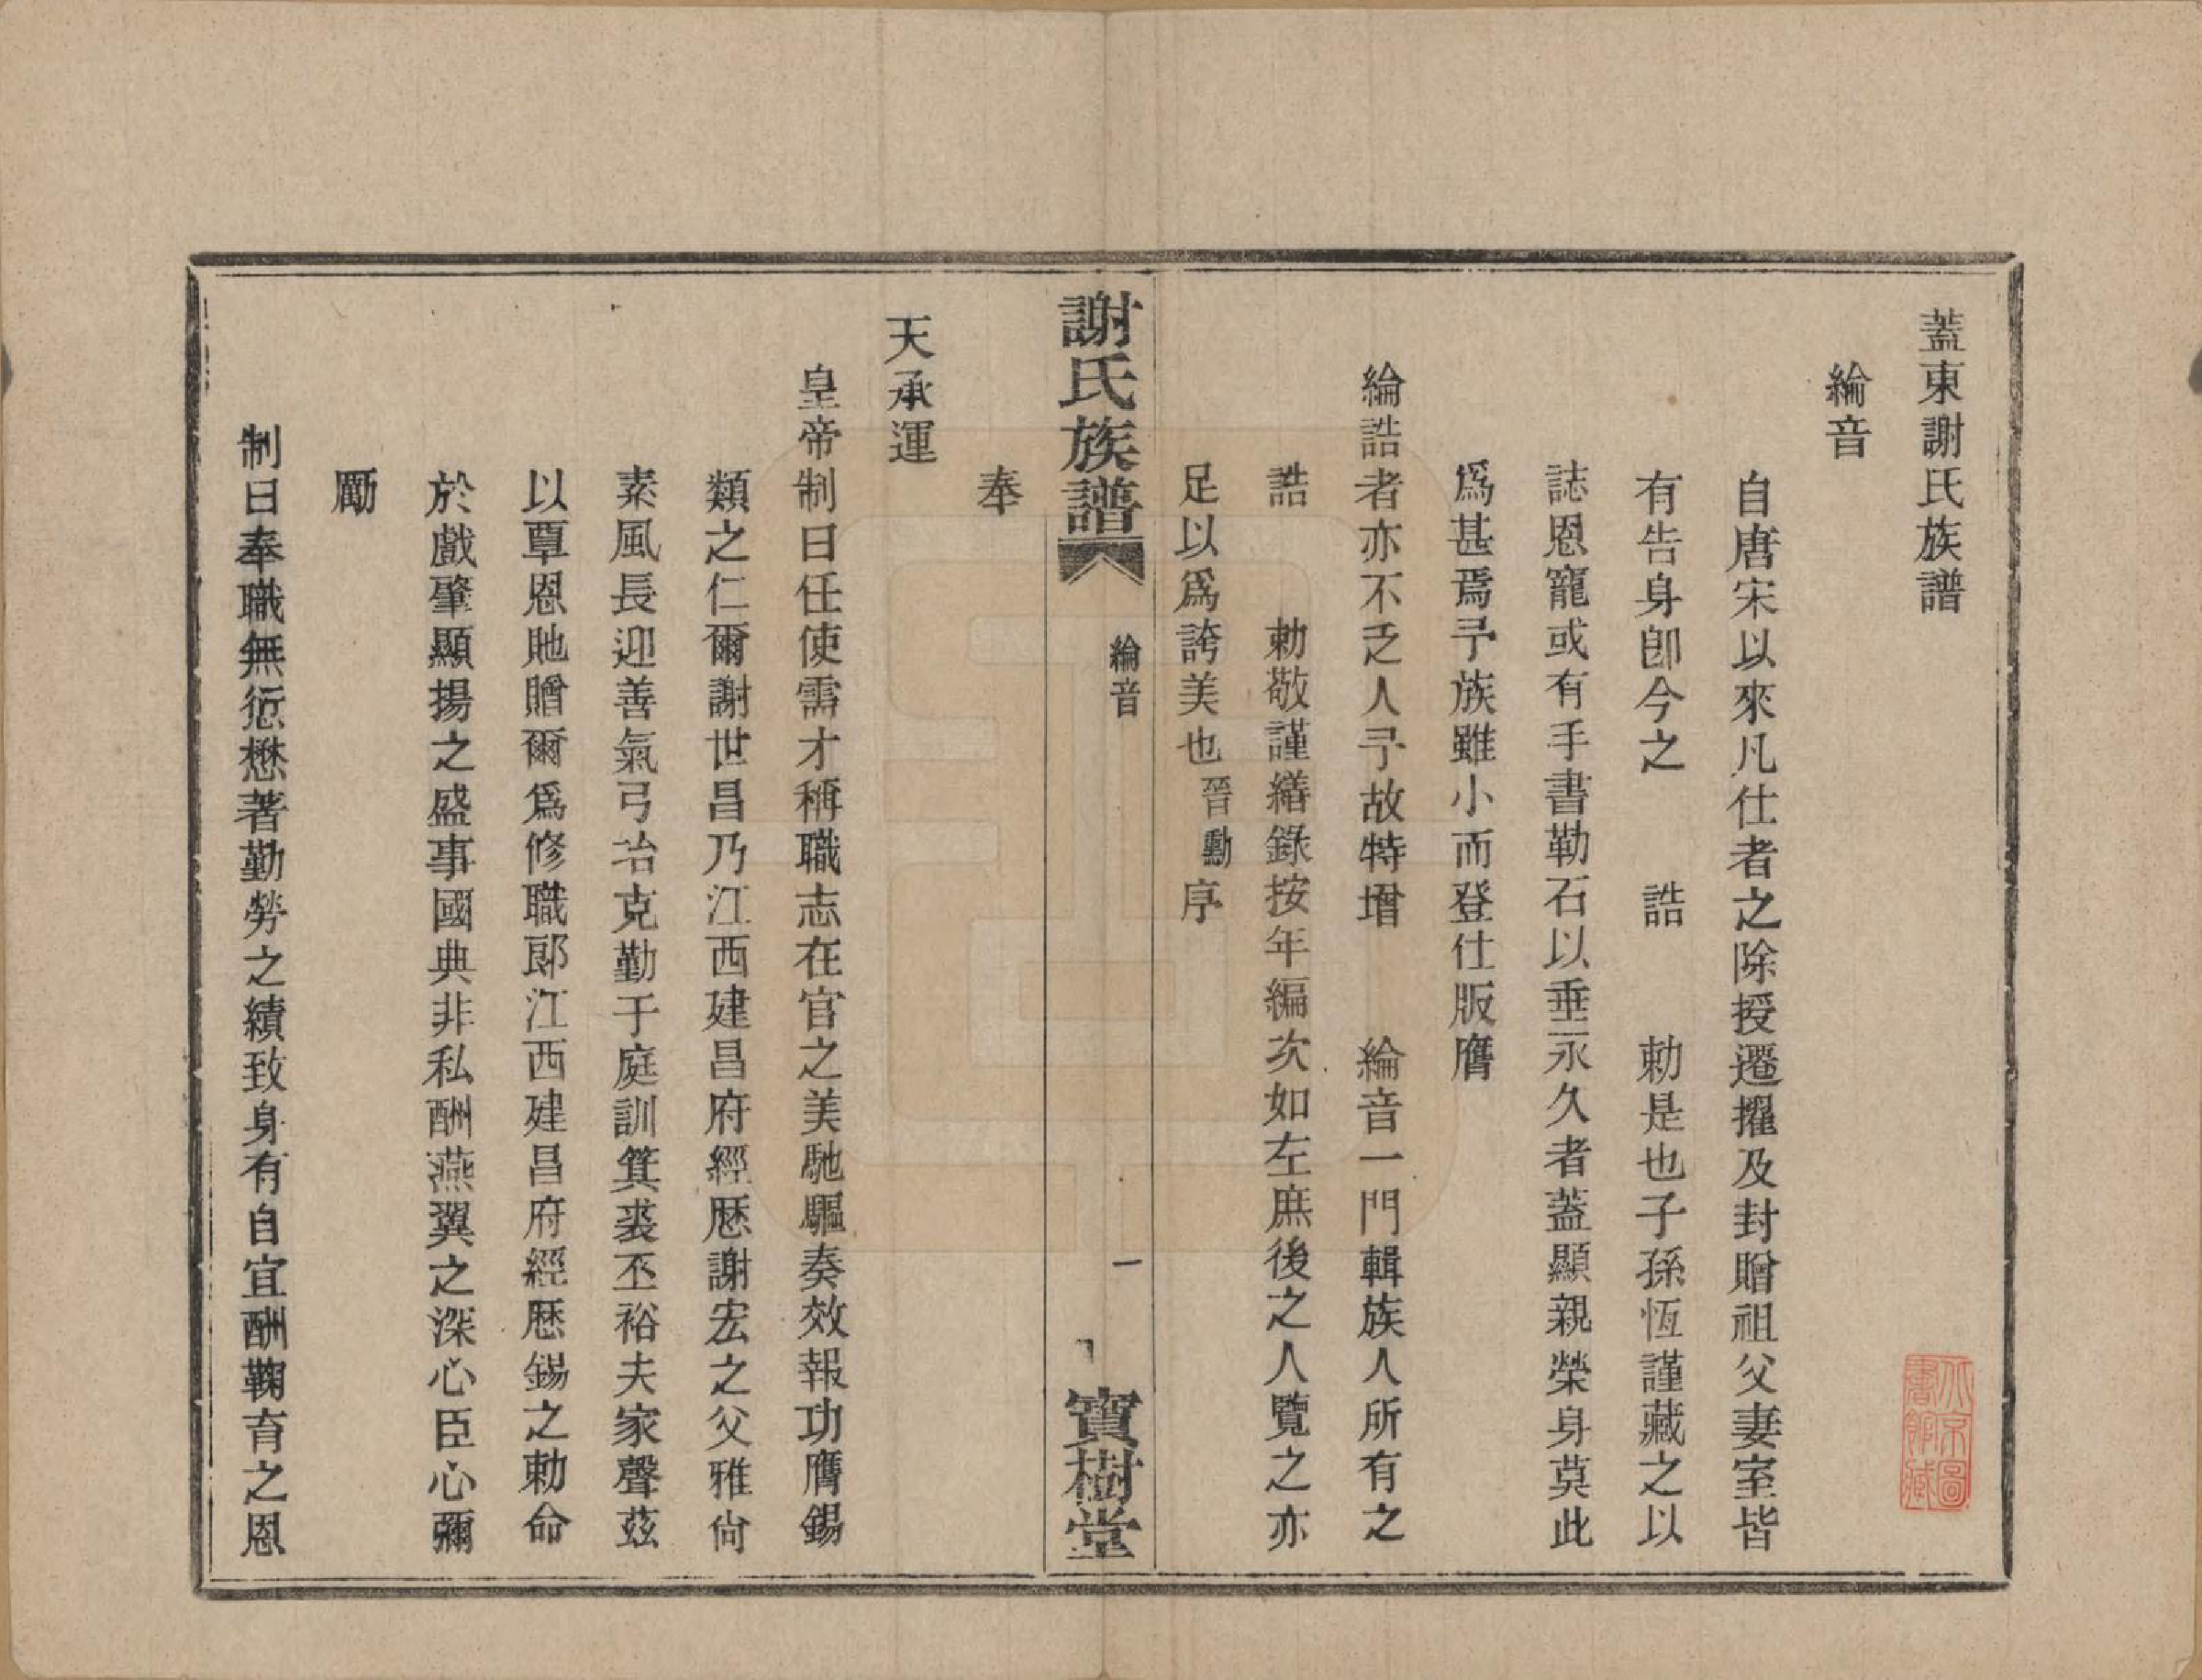 蓋東謝氏族譜
綸音
自唐宋以來凡仕者之除授遷擢及封贈祖父妻室皆
有告身卽今之 誥 勅是也子孫恆謹藏之以
誌恩寵或有手書勒石以垂永久者蓋顯親榮身莫此
爲甚焉予族雖小而登仕版膺
綸誥者亦不乏人予故特增 綸音一門輯族人所有之
誥 勅敬謹繕錄按年編次如左庶後之人覽之亦
足以爲誇美也晉勳序
謝氏族譜 綸音 一 寶樹堂
奉
天承運
皇帝制曰任使需才稱職志在官之美馳驅奏效報功膺錫
類之仁爾謝世昌乃江西建昌府經歷謝宏之父雅尙
素風長迎善氣弓冶克勤于庭訓箕裘丕裕夫家聲茲
以覃恩貤贈爾爲修職郎江西建昌府經歷錫之勅命
於戲肇顯揚之盛事國典非私酬燕翼之深心臣心彌
勵
制曰奉職無愆懋著勤勞之績致身有自宜酬鞠育之恩
北京圖
書館藏